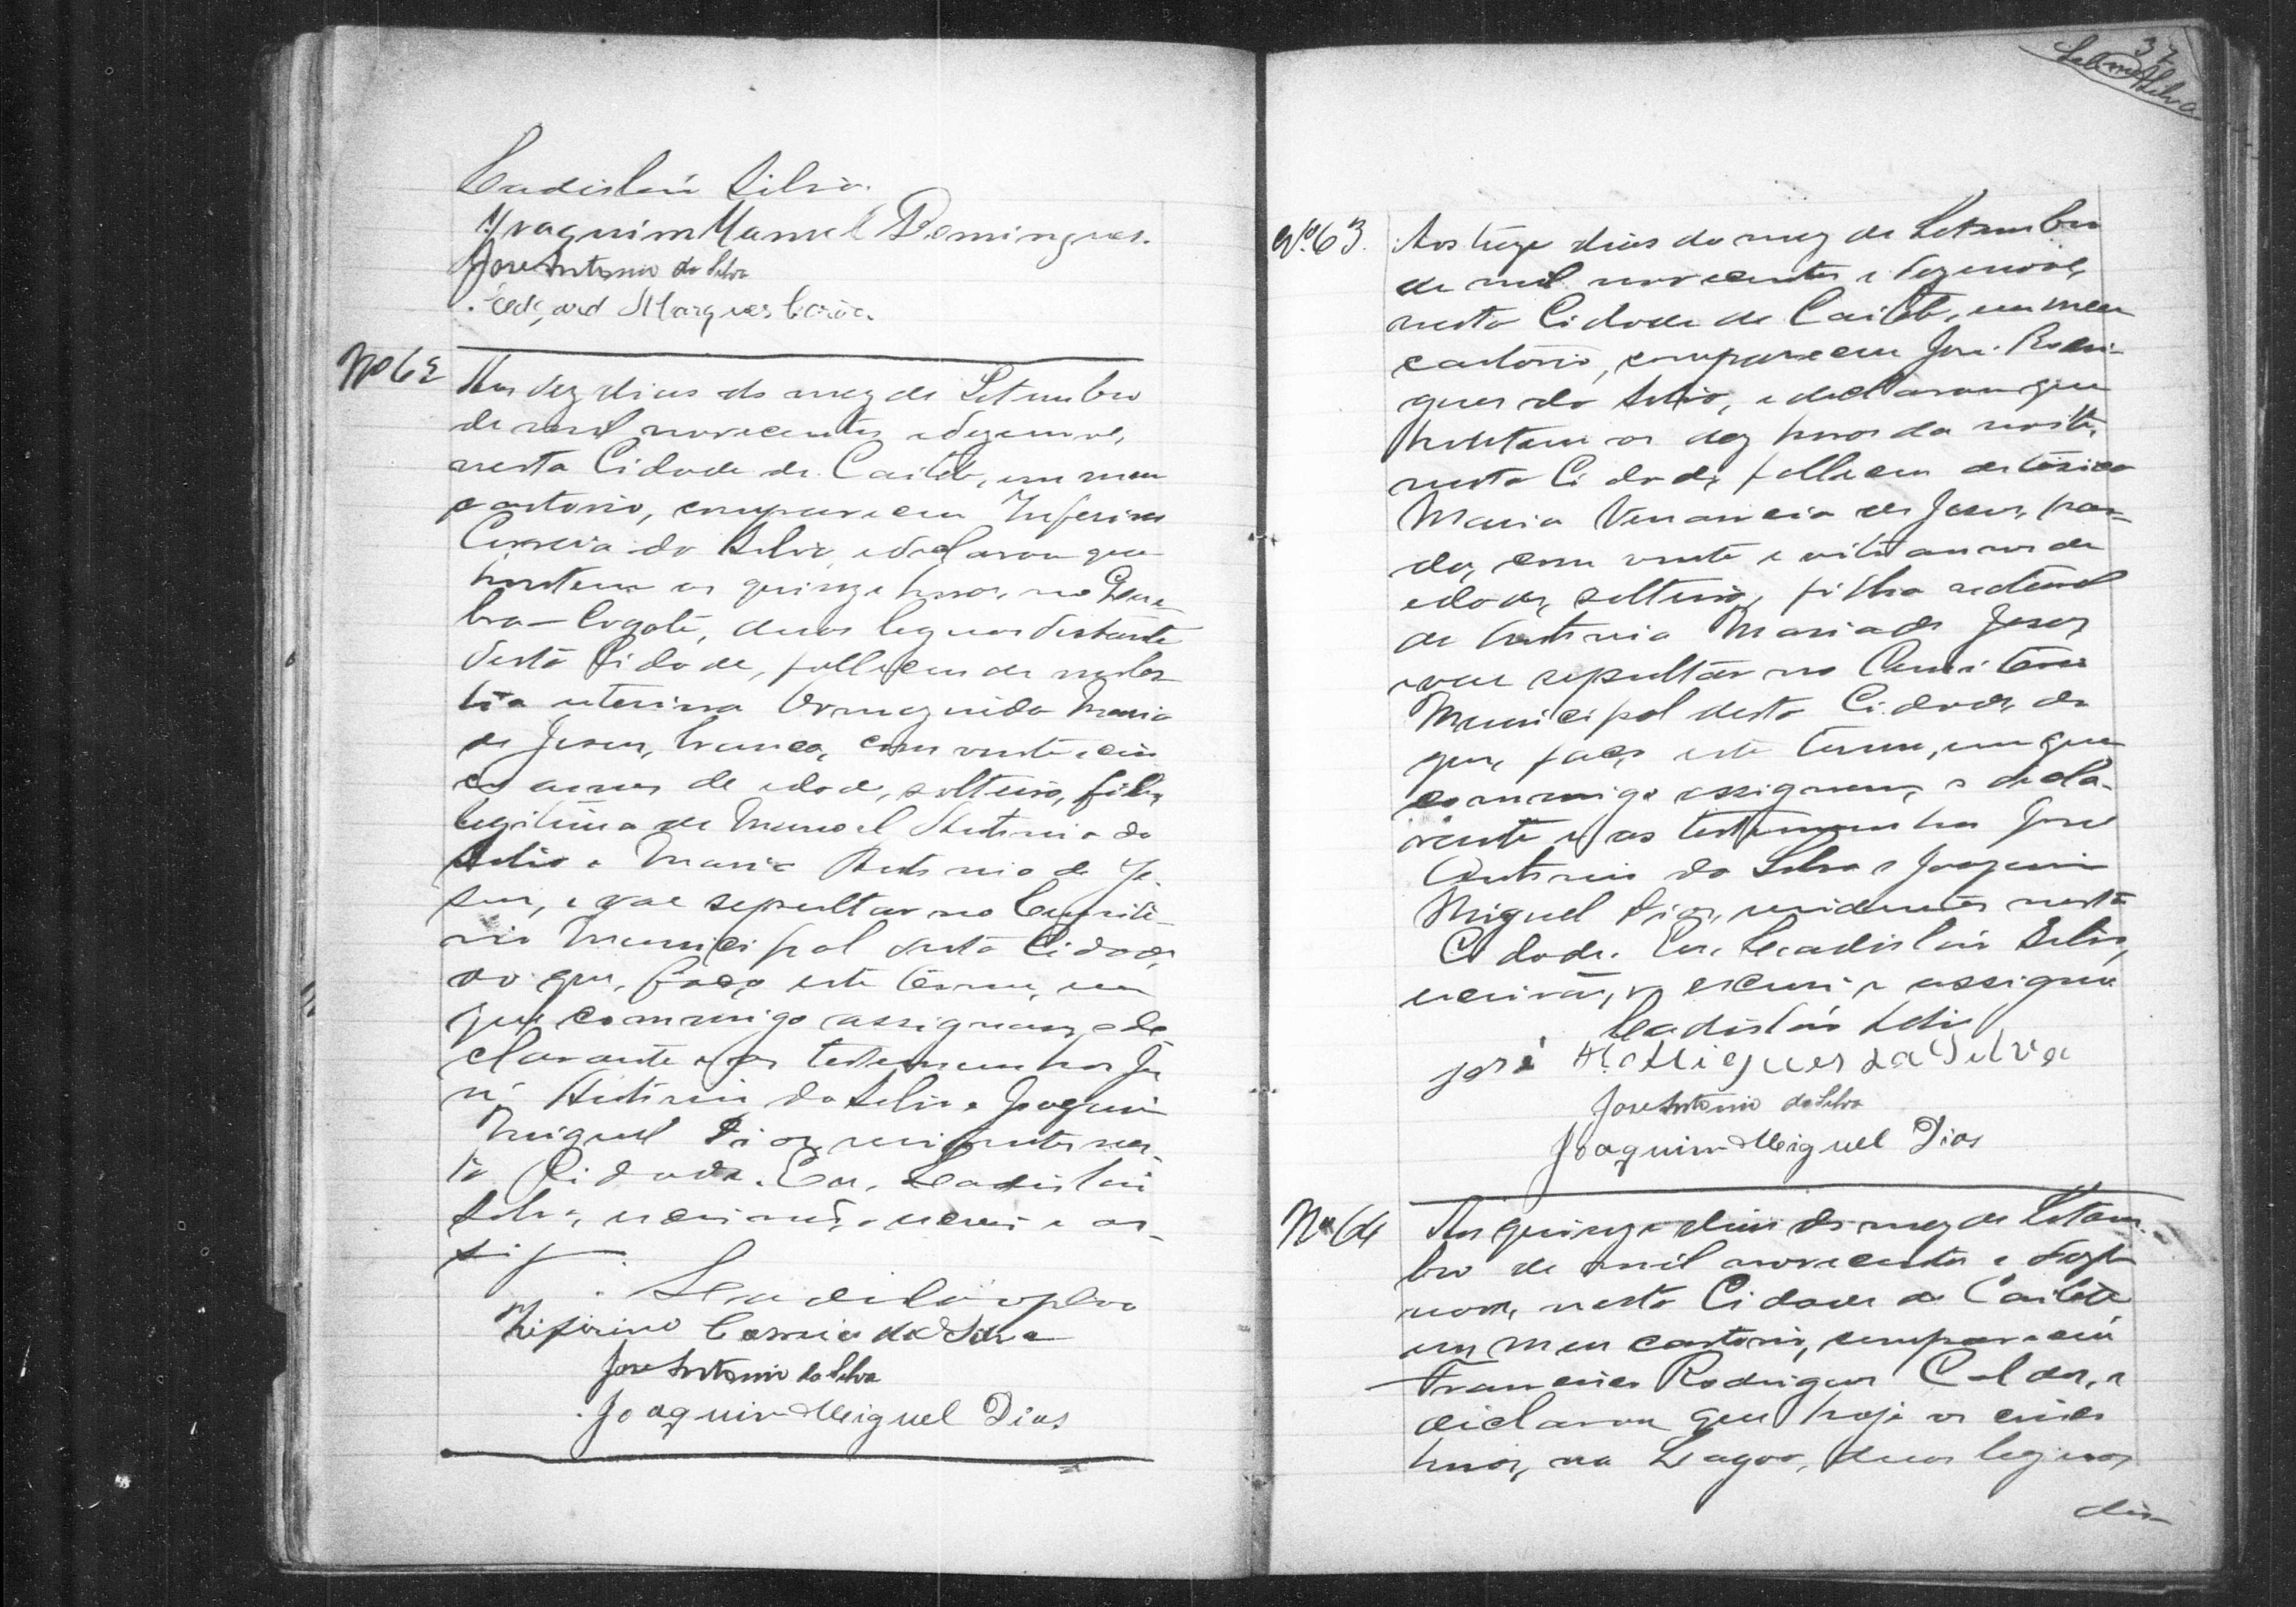 Ladislau Silva.
Joaquim Manuel Domingues.
José Antonio da Silva
Edgard Marques
Nº 62
Aos dez dias do mez de Setembro
de mil novecentos e dezenove,
nesta Cidade de Caité, em meu
cartorio, compareceu Zeferino
Correia da Silva, e declarou que
hontem as quinze horas, no Que-
bra-Cogote, duas leguas distante
desta Cidade, falleceu de moles-
tia uterina Ormezinda Maria
de Jesus, branca, com vinte e cin-
co annos de edade, solteira, filha
legitima de Manoel Antonio da
Silva e Maria Antonia de Je-
sus, e vae sepultar no Cemite-
rio Municipal desta Cidade,
do que, faço este termo, em
que commigo assignam, o de-
clarante e as testemunhas Jo-
sé Antonio da Silva e Joaquim
Miguel Dias, residentes nes-
ta Cidade. Eu, Ladislau
Silva, escrivão, o escrevi e as-
signo.
Ladislau Silva
Zeferino Correia da Silva
José Antonio da Silva
Joaquim Miguel Dias
37
Silva
Nº 63.
Aos treze dias do mez de Setembro
de mil novecentos e dezenove,
nesta Cidade de Caité, em meu
cartorio, compareceu José Rodri-
gues da Silva, e declarou que
hontem as dez horas da noite,
nesta Cidade, falleceu de tisica
Maria Venancia de Jesus, par-
da, com vinte e oito annos de
edade, solteira, filha natural
de Antonia Maria de Jesus,
e vae sepultar no Cemiterio
Municipal desta Cidade, do
que, faço este termo, em que
commigo assignam, o decla-
rante e as testemunhas José
Antonio da Silva e Joaquim
Miguel Dias, residentes nesta
Cidade. Eu, Ladislau Silva,
escrivão, o escrevi e assigno.
Ladislau Silva
José Rodrigues da Silva
José Antonio da Silva
Joaquim Miguel Dias
Nº 64
Aos quinze dias do mez de Setem-
bro de mil novecentos e deze-
nove, nesta Cidade de Caité
em meu cartorio, compareceu
Francisco Rodrigues Caldas, e
declarou que hoje as cinco
horas, na Lagoa, duas leguas
dis-